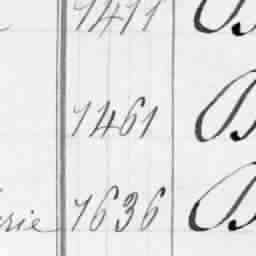 1411 B
1461 B
rie 1636 B